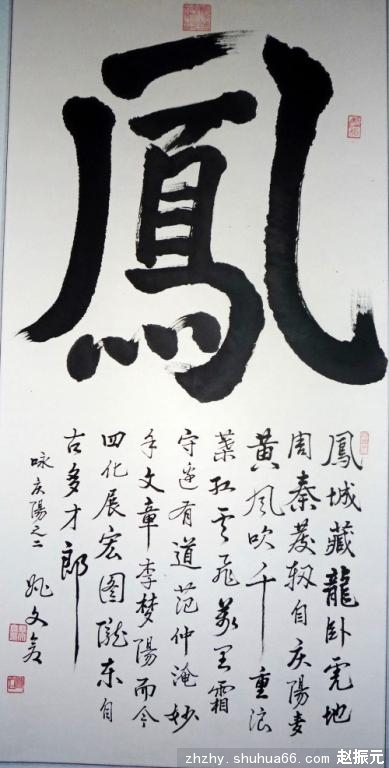 鳳
鳳城藏龍卧虎地
周秦發轫自庆陽麦
黄风吹千重浪
葉红云飛萬里霜
守边有道范仲淹妙
手文章李梦陽而今
四化展宏图陇东自
古多才郎
咏庆陽之二 姚文
zhzhy.shuhua66.com 赵振元